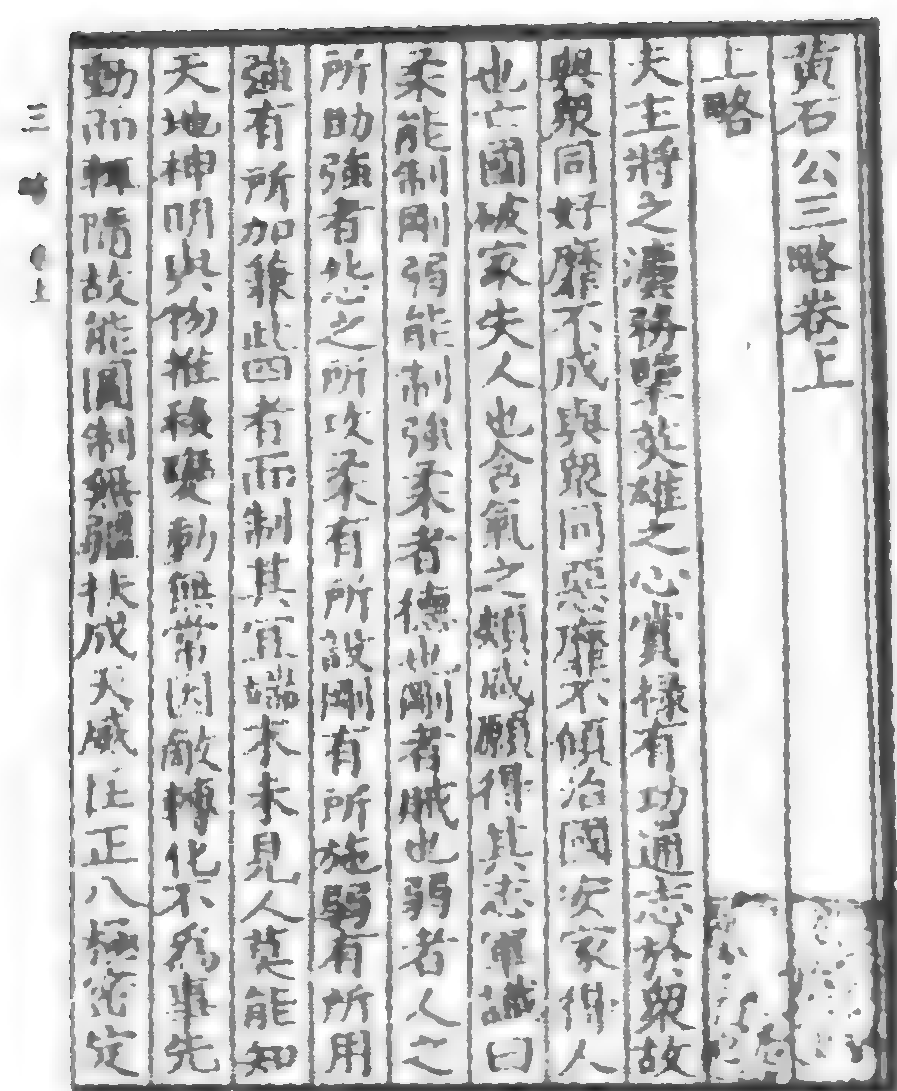 黃石公三略卷上
上略
夫主將之灋務擥英雄之心賞祿有功通志於衆故
與衆同好靡不成與衆同惡靡不傾治國安家得人
也亡國破家失人也含氣之類咸願得其志軍讖曰
柔能制剛弱能制強柔者德也剛者賊也弱者人之
所助強者怨之所攻柔有所設剛有所施弱有所用
強有所加兼此四者而制其宜端末未見人莫能知
天地神明與物推移變動無常因敵轉化不為事先
動而輒隨故能圖制無疆扶成天威匡正八極密定
三略上